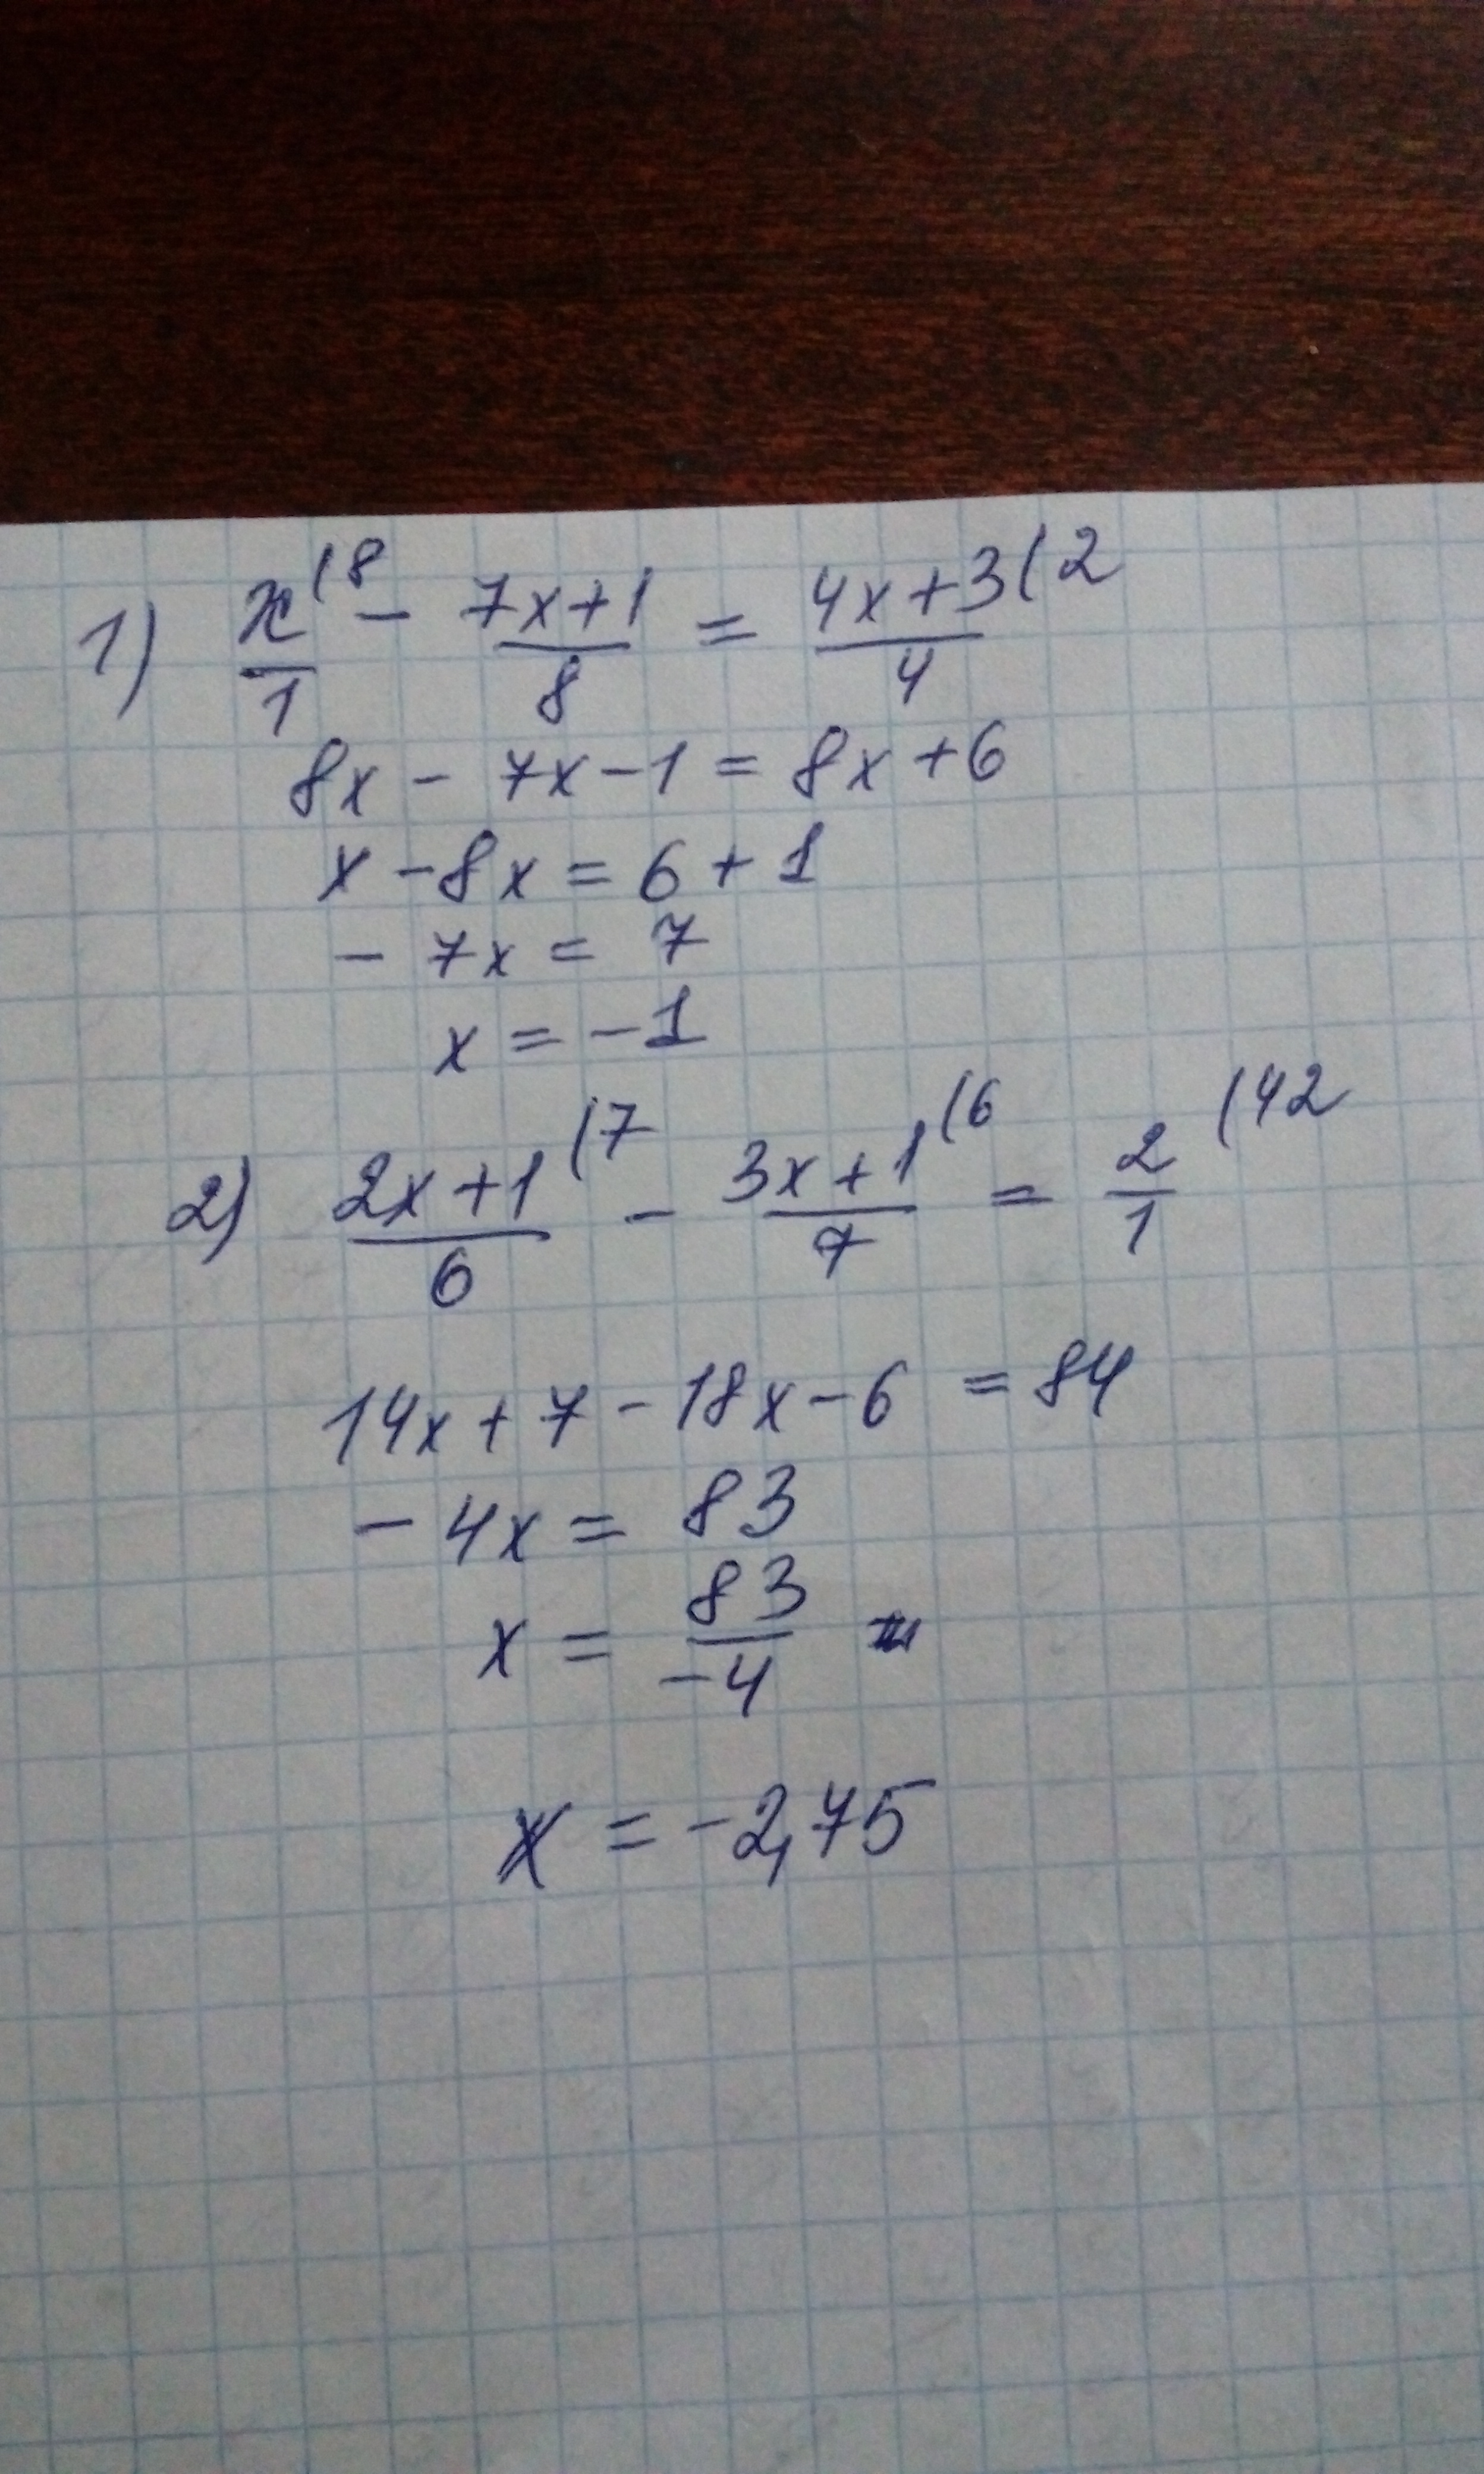 1) x/1 (8 - 7x+1/8 = 4x+3/4 (2
8x - 7x - 1 = 8x + 6
x - 8x = 6 + 1
- 7x = 7
x = -1
2) 2x+1/6 (7 - 3x+1/7 (6 = 2/1 (42
14x + 7 - 18x - 6 = 84
- 4x = 83
x = 83/-4
x = -2,75